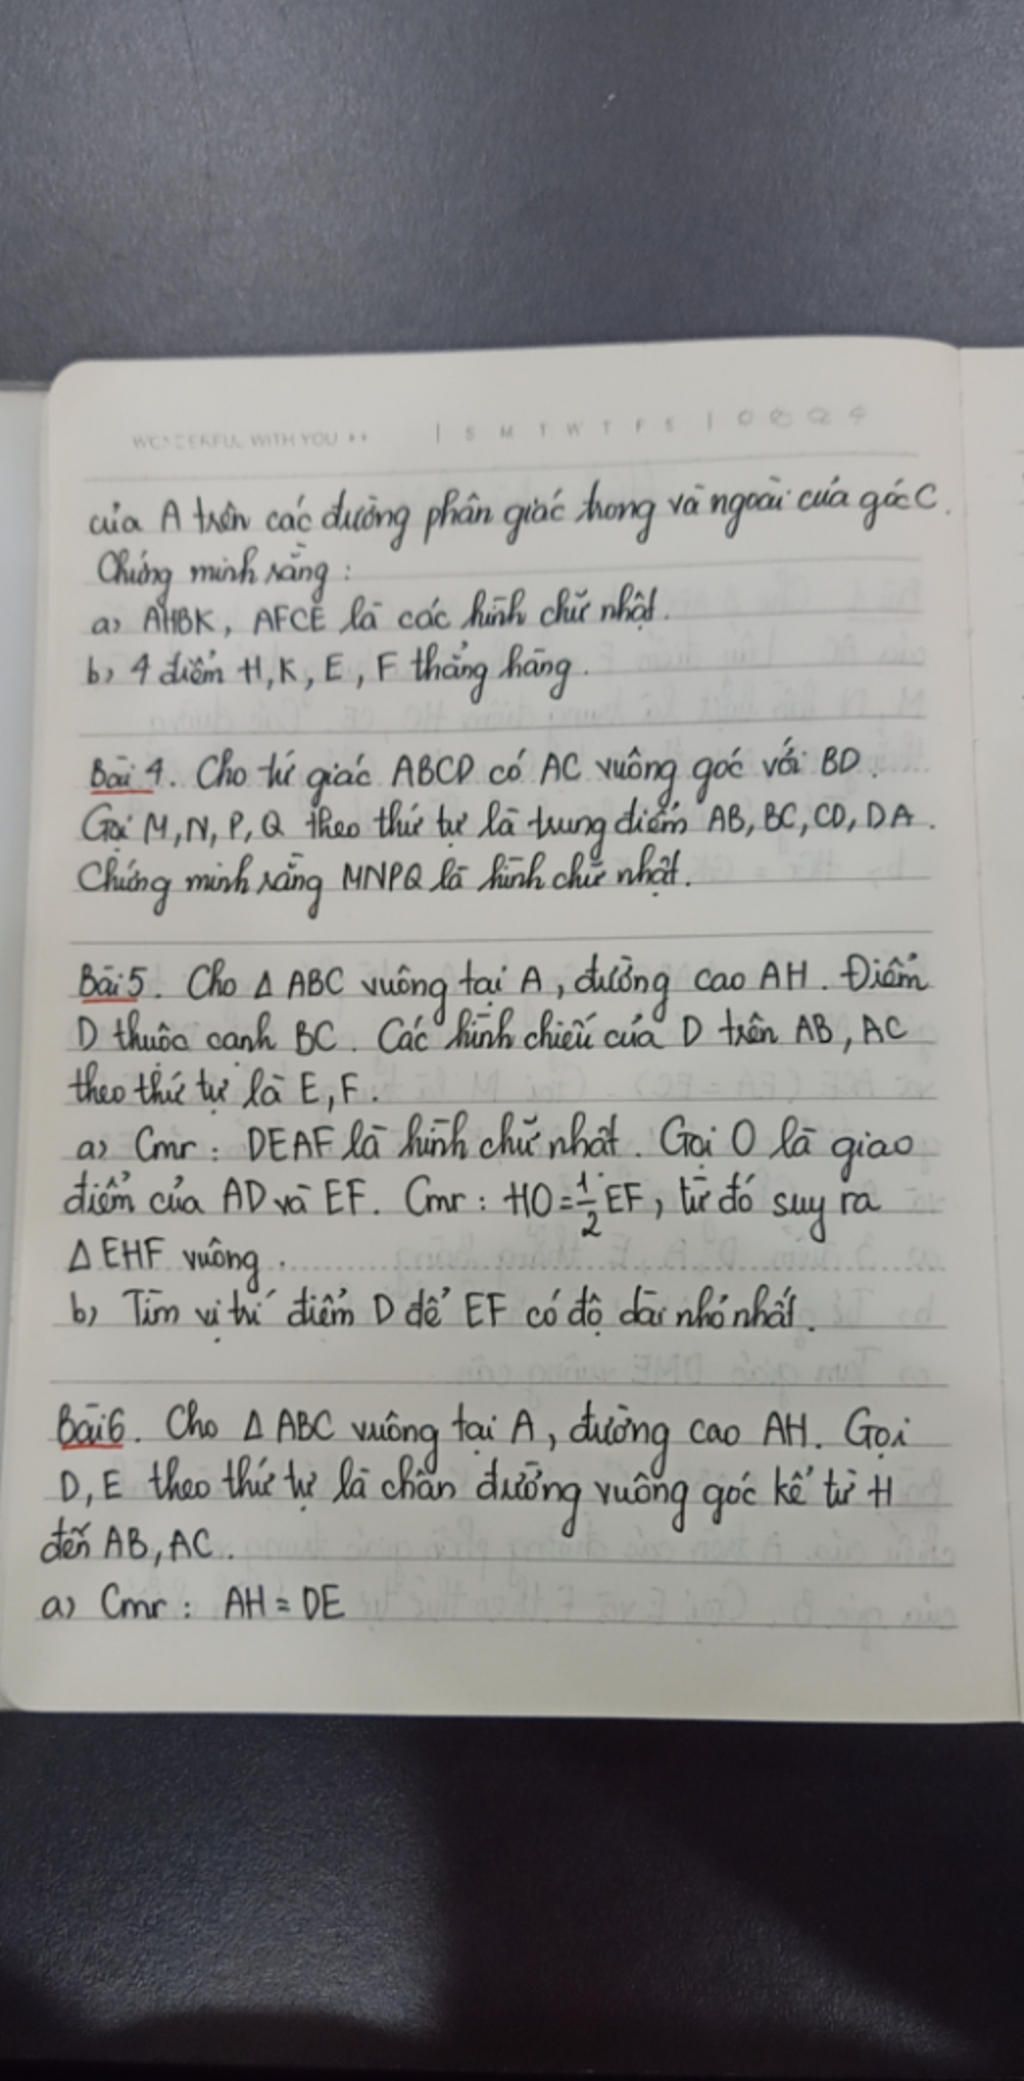 WONDERFUL WITH YOU
S M T W T F S
của A trên các đường phân giác trong và ngoài của góc C.
Chứng minh rằng:
a) AHBK, AFCE là các hình chữ nhật.
b) 4 điểm H, K, E, F thẳng hàng.
Bài 4. Cho tứ giác ABCD có AC vuông góc với BD.
Gọi M, N, P, Q theo thứ tự là trung điểm AB, BC, CD, DA.
Chứng minh rằng MNPQ là hình chữ nhật.
Bài 5. Cho Δ ABC vuông tại A, đường cao AH. Điểm
D thuộc cạnh BC. Các hình chiếu của D trên AB, AC
theo thứ tự là E, F.
a) Cmr: DEAF là hình chữ nhật. Gọi O là giao
điểm của AD và EF. Cmr: HO = 1/2 EF, từ đó suy ra
Δ EHF vuông.
b) Tìm vị trí điểm D để EF có độ dài nhỏ nhất.
Bài 6. Cho Δ ABC vuông tại A, đường cao AH. Gọi
D, E theo thứ tự là chân đường vuông góc kẻ từ H
đến AB, AC.
a) Cmr: AH = DE